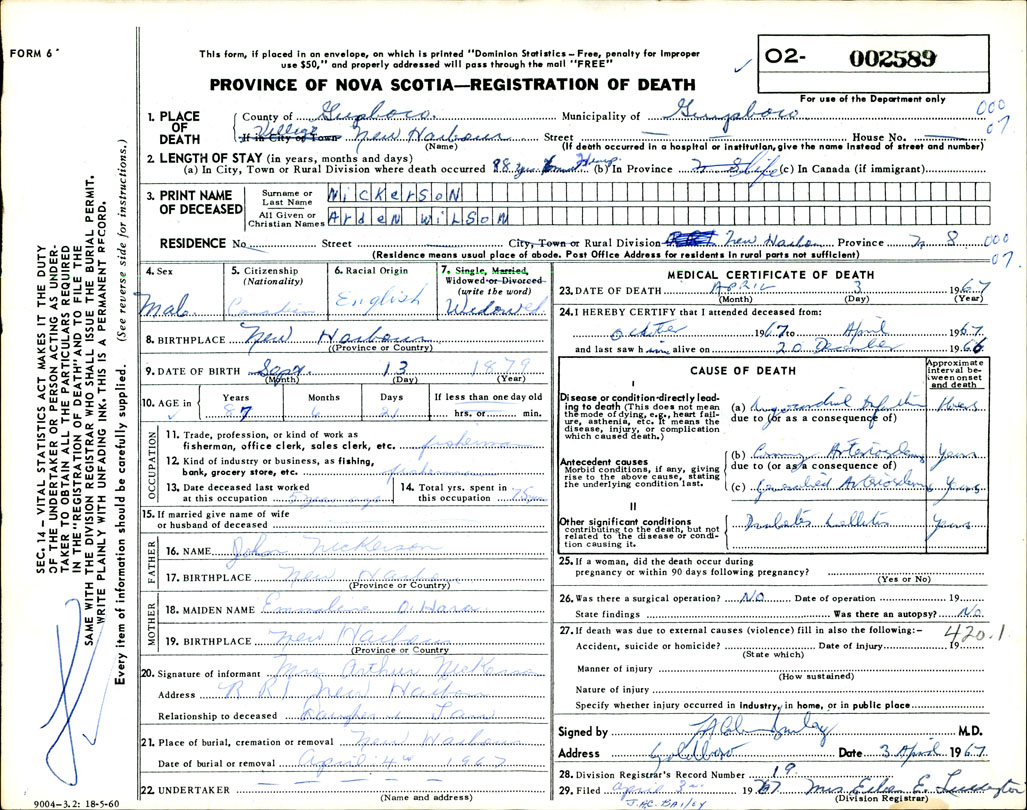 FORM 6
This form, if placed in an envelope, on which is printed "Dominion Statistics – Free, penalty for improper
use $50," and properly addressed will pass through the mail "FREE"
O2- 002589
For use of the Department only
PROVINCE OF NOVA SCOTIA—REGISTRATION OF DEATH
000
07
1. PLACE OF DEATH
County of Guysboro Municipality of Guysboro
If in City of Town Village New Harbour Street House No.
(Name) (If death occurred in a hospital or institution, give the name instead of street and number)
2. LENGTH OF STAY (in years, months and days)
(a) In City, Town or Rural Division where death occurred 88 yrs (b) In Province Life (c) In Canada (if immigrant)
3. PRINT NAME OF DECEASED
Surname or Last Name NICKERSON
All Given or Christian Names Arden WILSON
RESIDENCE No. Street City, Town or Rural Division New Harbor Province N S
000
07
(Residence means usual place of abode. Post Office Address for residents in rural parts not sufficient)
4. Sex Male
5. Citizenship (Nationality) Canadian
6. Racial Origin English
7. Single, Married, Widowed or Divorced (write the word) Widowed
8. BIRTHPLACE New Harbour
(Province or Country)
9. DATE OF BIRTH Sept 13 1879
(Month) (Day) (Year)
10. AGE in Years 87 Months 6 Days 21 If less than one day old hrs. or min.
OCCUPATION
11. Trade, profession, or kind of work as fisherman, office clerk, sales clerk, etc. fisherman
12. Kind of industry or business, as fishing, bank, grocery store, etc.
13. Date deceased last worked at this occupation
14. Total yrs. spent in this occupation
15. If married give name of wife or husband of deceased
FATHER
16. NAME John Nickerson
17. BIRTHPLACE New Harbour
(Province or Country)
MOTHER
18. MAIDEN NAME Emmaline O'Hara
19. BIRTHPLACE New Harbour
(Province or Country)
20. Signature of informant Mrs Arthur Nickerson
Address R R 1 New Harbor
Relationship to deceased Daughter in Law
21. Place of burial, cremation or removal New Harbour
Date of burial or removal April 4th 1967
22. UNDERTAKER
(Name and address)
9004-3.2: 18-5-60
MEDICAL CERTIFICATE OF DEATH
23. DATE OF DEATH APRIL 3 1967
(Month) (Day) (Year)
24. I HEREBY CERTIFY that I attended deceased from:
1967 to April 1967
and last saw him alive on 20 December 1966
CAUSE OF DEATH
Approximate interval between onset and death
I
Disease or condition directly leading to death (This does not mean the mode of dying, e.g., heart failure, asthenia, etc. It means the disease, injury, or complication which caused death.)
(a) Myocardial Infarction
due to (or as a consequence of)
Antecedent causes
Morbid conditions, if any, giving rise to the above cause, stating the underlying condition last.
(b) Coronary Arteriosclerosis Years
due to (or as a consequence of)
(c) Generalised Arteriosclerosis Years
II
Other significant conditions contributing to the death, but not related to the disease or condition causing it.
Diabetes Mellitus Years
25. If a woman, did the death occur during
pregnancy or within 90 days following pregnancy?
(Yes or No)
26. Was there a surgical operation? NO Date of operation 19
State findings Was there an autopsy? No
27. If death was due to external causes (violence) fill in also the following:- 420.1
Accident, suicide or homicide? Date of injury 19
(State which)
Manner of injury
(How sustained)
Nature of injury
Specify whether injury occurred in industry, in home, or in public place
Signed by M.D.
Address Goldboro Date 3 April 1967
28. Division Registrar's Record Number 19
29. Filed April 3rd 1967 Mrs
(Division Registrar)
J.A.C. BAILEY
SEC. 14 – VITAL STATISTICS ACT MAKES IT THE DUTY
OF THE UNDERTAKER OR PERSON ACTING AS UNDER-
TAKER TO OBTAIN ALL THE PARTICULARS REQUIRED
IN THE "REGISTRATION OF DEATH" AND TO FILE THE
SAME WITH THE DIVISION REGISTRAR WHO SHALL ISSUE THE BURIAL PERMIT.
WRITE PLAINLY WITH UNFADING INK. THIS IS A PERMANENT RECORD.
Every item of information should be carefully supplied. (See reverse side for instructions.)